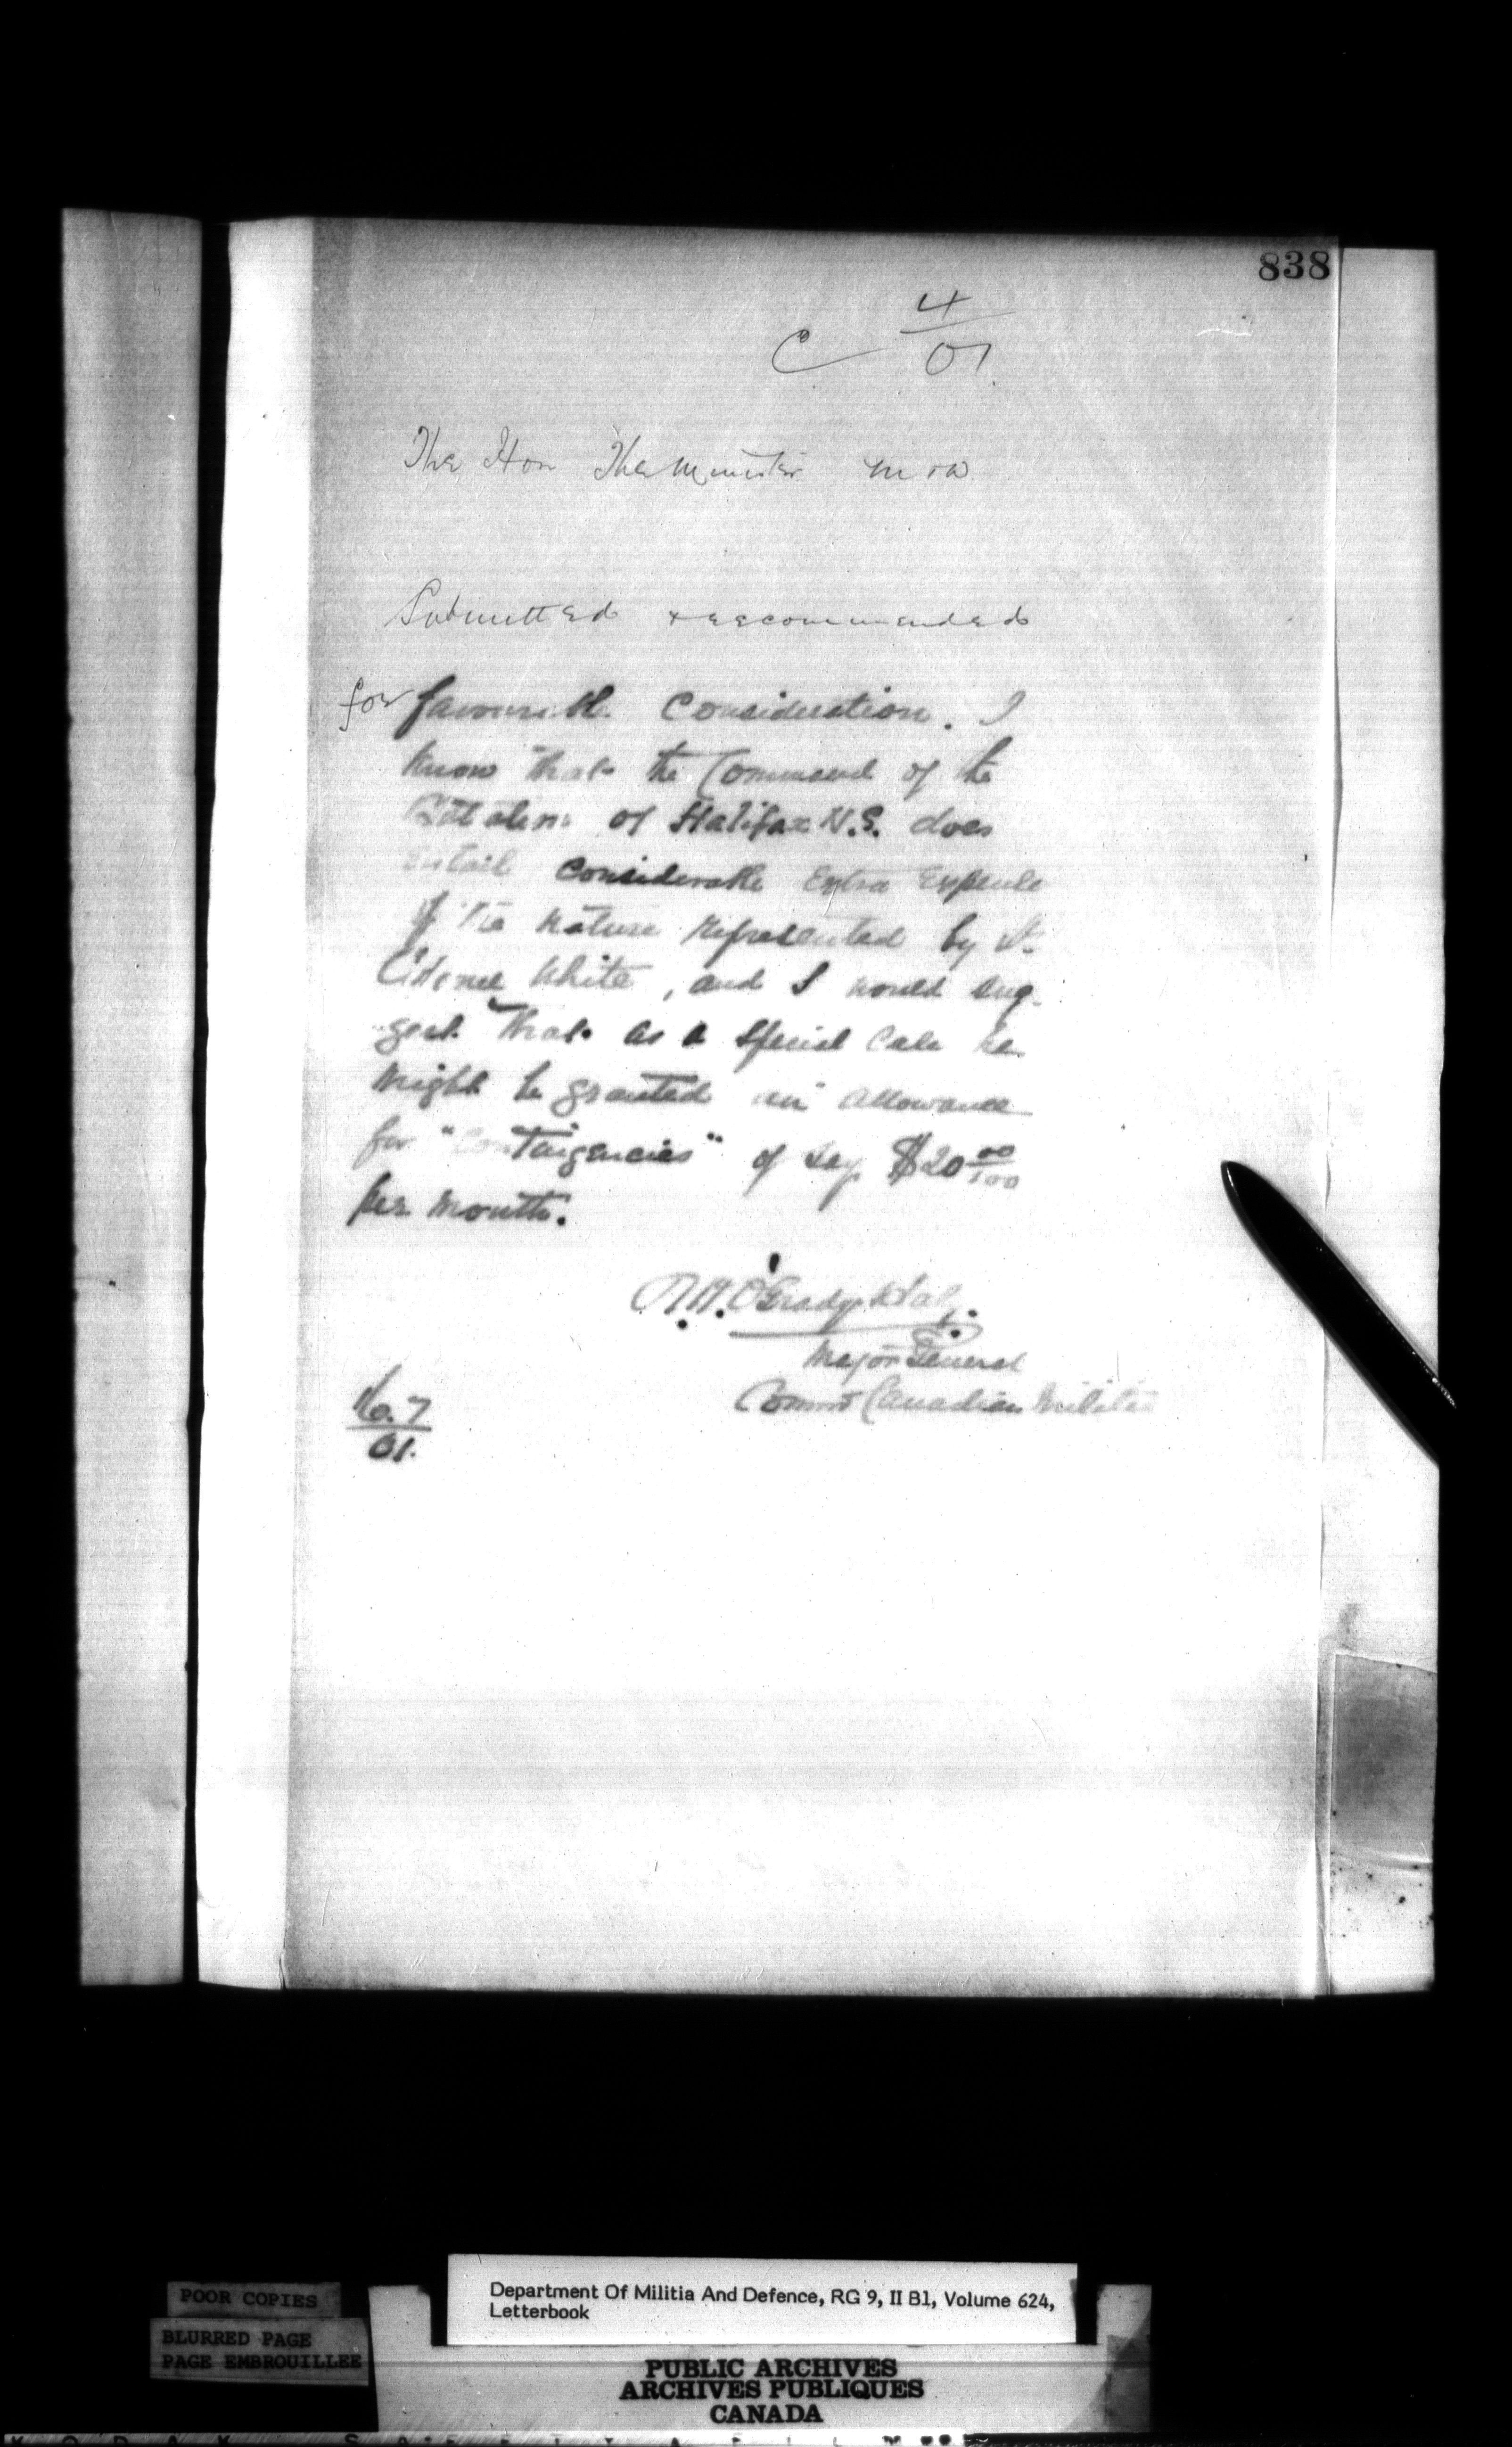 838
C 4/01
The Hon The Minister M & D
Submitted & recommended
for favourable Consideration. I
know that the Command of the
of Halifax N.S. does
entail Considerable Extra Expense
of the nature represented by Lt.
Colonel White, and I would sug-
gest that as a Special Case he
might be granted an allowance
for "Contingencies" of say $20 00/100
per month.
R. H. O'Grady Haly.
Major General
Comm'd Canadian Militia
7
01.
POOR COPIES
BLURRED PAGE
PAGE EMBROUILLEE
Department Of Militia And Defence, RG 9, II B1, Volume 624,
Letterbook
PUBLIC ARCHIVES
ARCHIVES PUBLIQUES
CANADA